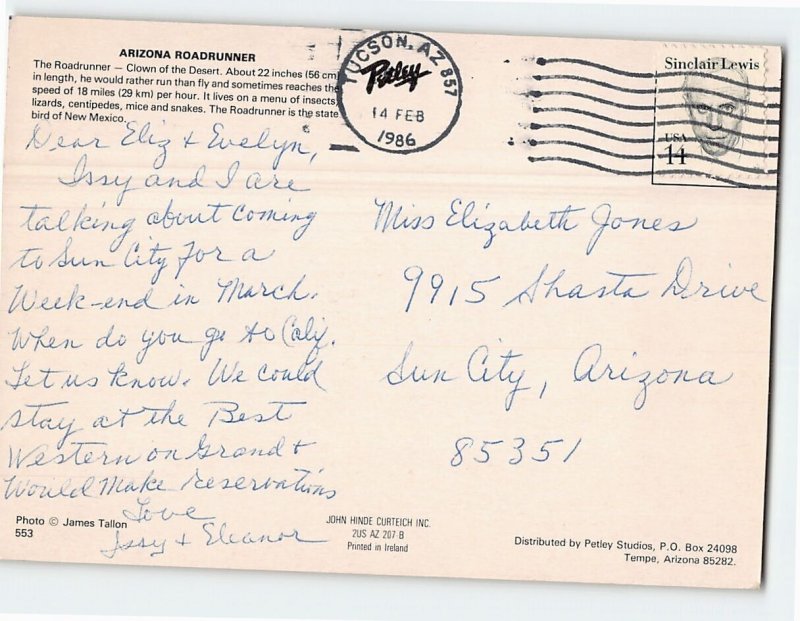 ARIZONA ROADRUNNER
The Roadrunner — Clown of the Desert. About 22 inches (56 cm)
in length, he would rather run than fly and sometimes reaches the
speed of 18 miles (29 km) per hour. It lives on a menu of insects,
lizards, centipedes, mice and snakes. The Roadrunner is the state
bird of New Mexico.
TUCSON, AZ 857
Petley
14 FEB
1986
Sinclair Lewis
USA
14
Dear Eliz + Evelyn,
Issy and I are
talking about coming
to Sun City for a
Week-end in March.
When do you go to Calif.
Let us know. We could
stay at the Best
Western on Grand +
Would Make reservations
Love
Issy + Eleanor
Miss Elizabeth Jones
9915 Shasta Drive
Sun City, Arizona
85351
Photo © James Tallon
553
JOHN HINDE CURTEICH INC.
2US AZ 207-B
Printed in Ireland
Distributed by Petley Studios, P.O. Box 24098
Tempe, Arizona 85282.